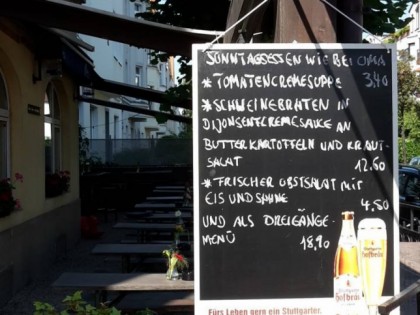 SONNTAGSESSEN WIE BEI OMA
* TOMATENCREMESUPPE 3,40
* SCHWEINEBRATEN IN
DIJONSENFCREMESAUCE AN
BUTTERKARTOFFELN UND KRAUT-
SALAT 12.60
* FRISCHER OBSTSALAT MIT
EIS UND SAHNE 4,50
UND ALS DREIGÄNGE-
MENÜ 18,90
Stuttgarter
Hofbräu
Hofbräu
Fürs Leben gern ein Stuttgarter.